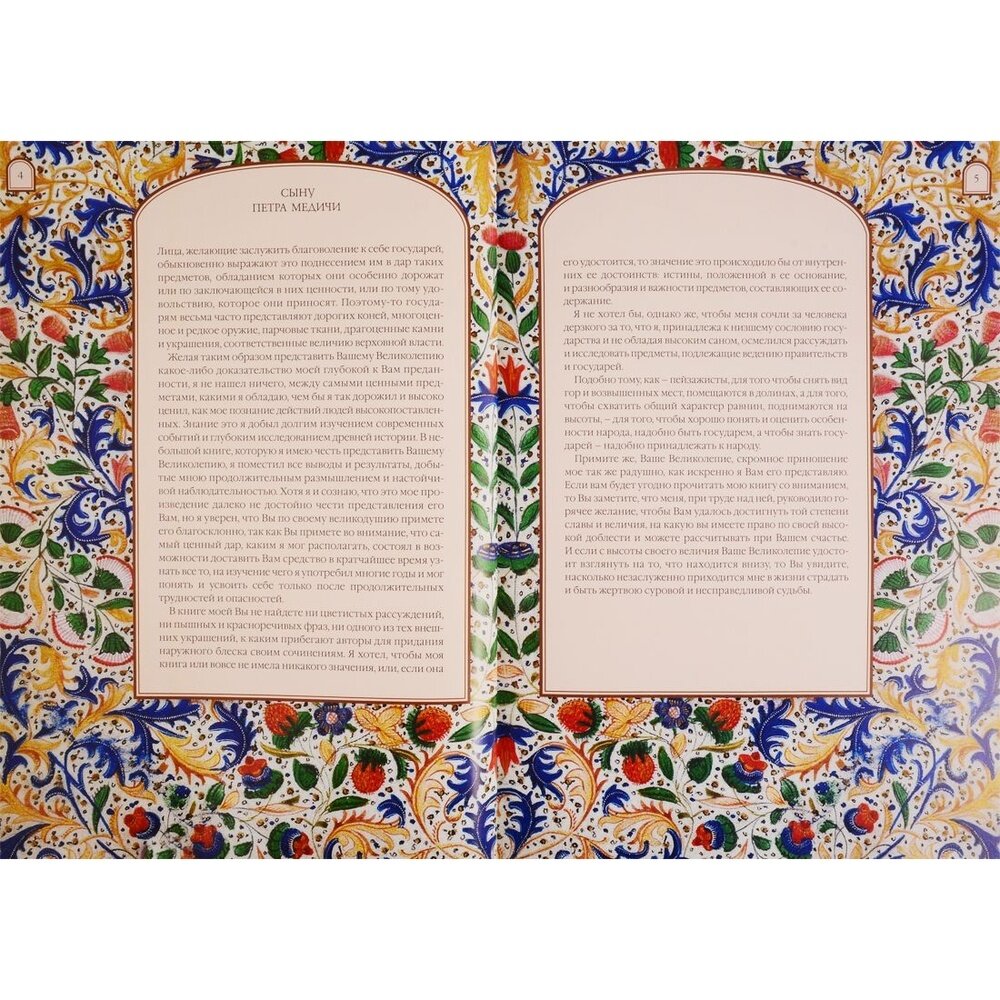 4
СЫНУ
ПЕТРА МЕДИЧИ
Лица, желающие заслужить благоволение к себе государей,
обыкновенно выражают это поднесением им в дар таких
предметов, обладанием которых они особенно дорожат
или по заключающейся в них ценности, или по тому удо-
вольствию, которое они приносят. Поэтому-то госуда-
рям весьма часто представляют дорогих коней, многоцен-
ное и редкое оружие, парчовые ткани, драгоценные камни
и украшения, соответственные величию верховной власти.
Желая таким образом представить Вашему Великолепию
какое-либо доказательство моей глубокой к Вам предан-
ности, я не нашел ничего, между самыми ценными пред-
метами, какими я обладаю, чем бы я так дорожил и высоко
ценил, как мое познание действий людей высокопоставлен-
ных. Знание это я добыл долгим изучением современных
событий и глубоким исследованием древней истории. В не-
большой книге, которую я имею честь представить Вашему
Великолепию, я поместил все выводы и результаты, добы-
тые мною продолжительным размышлением и настойчи-
вой наблюдательностью. Хотя я и сознаю, что это мое про-
изведение далеко не достойно чести представления его
Вам, но я уверен, что Вы по своему великодушию примете
его благосклонно, так как Вы примете во внимание, что са-
мый ценный дар, каким я мог располагать, состоял в воз-
можности доставить Вам средство в кратчайшее время уз-
нать все то, на изучение чего я употребил многие годы и мог
понять и усвоить себе только после продолжительных
трудностей и опасностей.
В книге моей Вы не найдете ни цветистых рассуждений,
ни пышных и красноречивых фраз, ни одного из тех внеш-
них украшений, к каким прибегают авторы для придания
наружного блеска своим сочинениям. Я хотел, чтобы моя
книга или вовсе не имела никакого значения, или, если она
5
его удостоится, то значение это происходило бы от внутрен-
них ее достоинств: истины, положенной в ее основание,
и разнообразия и важности предметов, составляющих ее со-
держание.
Я не хотел бы, однако же, чтобы меня сочли за человека
дерзкого за то, что я, принадлежа к низшему сословию госу-
дарства и не обладая высоким саном, осмелился рассуждать
и исследовать предметы, подлежащие ведению правительств
и государей.
Подобно тому, как – пейзажисты, для того чтобы снять вид
гор и возвышенных мест, помещаются в долинах, а для того,
чтобы схватить общий характер равнин, поднимаются на
высоты, – для того, чтобы хорошо понять и оценить особен-
ности народа, надобно быть государем, а чтобы знать госу-
дарей – надобно принадлежать к народу.
Примите же, Ваше Великолепие, скромное приношение
мое так же радушно, как искренно я Вам его представляю.
Если вам будет угодно прочитать мою книгу со вниманием,
то Вы заметите, что меня, при труде над ней, руководило го-
рячее желание, чтобы Вам удалось достигнуть той степени
славы и величия, на какую вы имеете право по своей высо-
кой доблести и можете рассчитывать при Вашем счастье.
И если с высоты своего величия Ваше Великолепие удосто-
ит взглянуть на то, что находится внизу, то Вы увидите,
насколько незаслуженно приходится мне в жизни страдать
и быть жертвою суровой и несправедливой судьбы.